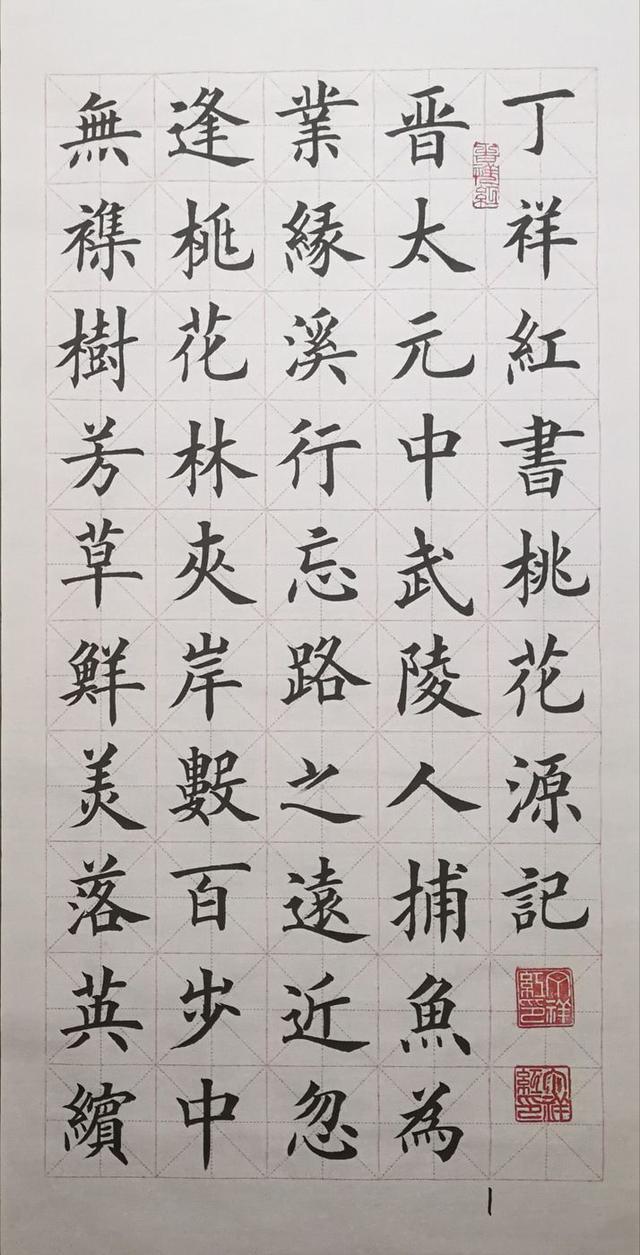 丁祥紅書桃花源記
晋太元中武陵人捕魚為
業緣溪行忘路之遠近忽
逢桃花林夾岸數百步中
無襍樹芳草鮮美落英繽